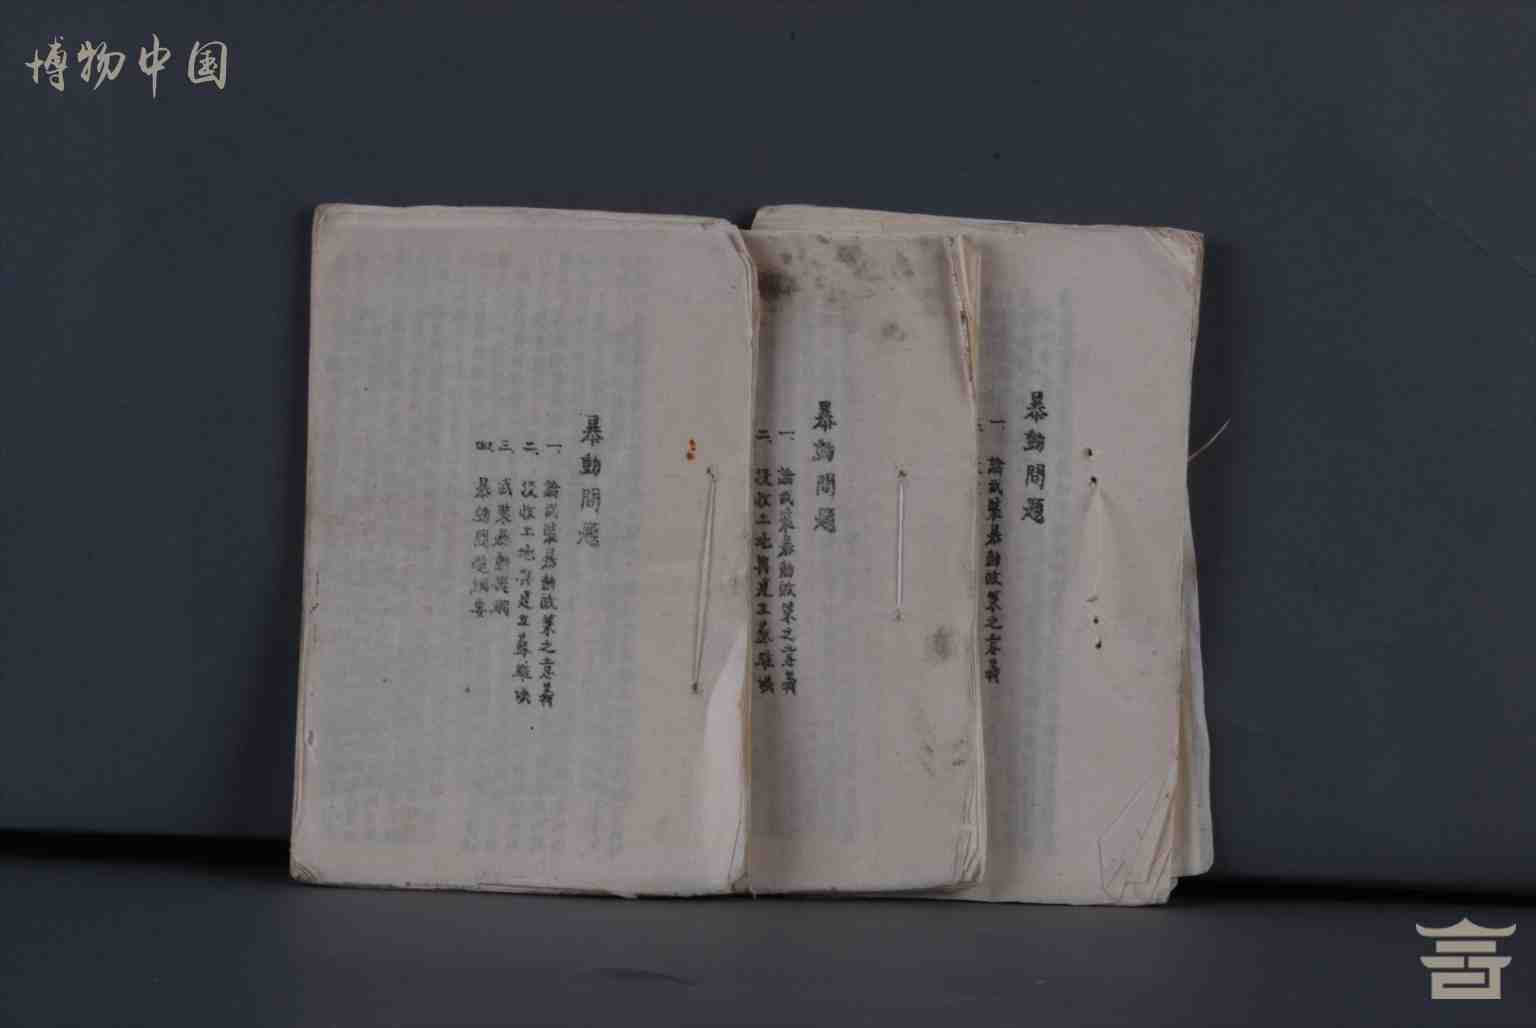 博物中国
暴動問題
一、論武裝暴動政策之意義
二、沒收土地與建立蘇維埃
三、武裝暴動
四、暴動問題綱要
暴動問題
一、論武裝暴動政策之意義
二、沒收土地與建立蘇維埃
暴動問題
一 論武裝暴動政策之意義